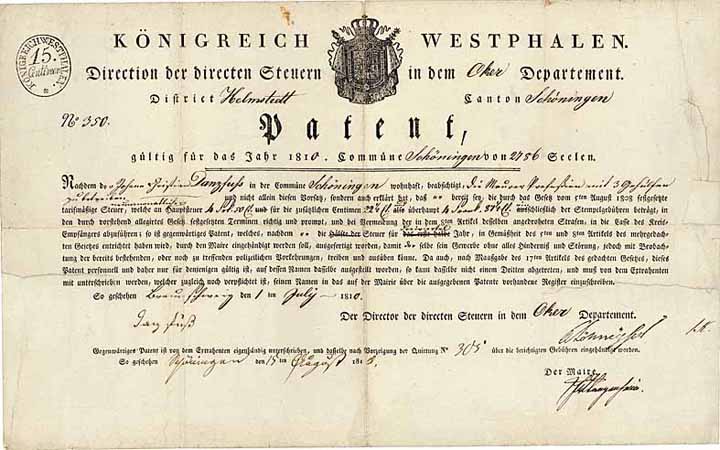 KÖNIGREICH WESTPHALEN.
KÖNIGREICH WESTPHALEN.
15.
Centimen
Direction der directen Steuern in dem Oker Departement.
District Helmstedt Canton Schöningen
No 350.
Patent,
gültig für das Jahr 1810. Commüne Schöningen von 2756 Seelen.
Nachdem der Johann Christian Danzfuss in der Commüne Schöningen wohnhaft, beabsichtigt, die Maurer Profession mit 3 Gehülfen
zu betreiben und nicht allein diesen Vorsatz, sondern auch erklärt hat, daß er bereit sey, die durch das Gesetz vom 5ten August 1808 festgesetzte
tarifmäßige Steuer, welche an Hauptsteuer 4 und für die zusätzlichen Centimen also überhaupt 4 ausschließlich der Stempelgebühren beträgt, in
den durch vorstehend allegirtes Gesetz festgesetzten Terminen richtig und prompt, und bei Vermeidung der in dem 8ten Artikel desselben angedroheten Strafen, in die Casse des Kreis-
Empfängers abzuführen; so ist gegenwärtiges Patent, welches, nachdem er die Hälfte der Steuer für das erste halbe Jahr, in Gemäßheit des 5ten und 6ten Artikels des mehrgedach-
ten Gesetzes entrichtet haben wird, durch den Maire eingehändigt werden soll, ausgefertigt worden, damit derselbe sein Gewerbe ohne alles Hinderniß und Störung, jedoch mit Beobach-
tung der bereits bestehenden, oder noch zu treffenden polizeilichen Vorkehrungen, treiben und ausüben könne. Da auch, nach Maaßgabe des 17ten Artikels des gedachten Gesetzes, dieses
Patent personnell und daher nur für denjenigen gültig ist, auf dessen Namen dasselbe ausgestellt worden, so kann dasselbe nicht einem Dritten abgetreten, und muß von dem Extrahenten
mit unterschrieben werden, welcher zugleich noch verpflichtet ist, seinen Namen in das auf der Mairie über die ausgegebenen Patente vorhandene Register einzuschreiben.
So geschehen Braunschweig den 1 im July 1810.
Der Director der directen Steuern in dem Oker Departement.
Danzfuß
Gegenwärtiges Patent ist von dem Extrahenten eigenhändig unterschrieben, und dasselbe nach Vorzeigung der Quittung No 305 über die berichtigten Gebühren eingehändigt worden.
So geschehen Schöningen den 15 im August 18
Der Maire.